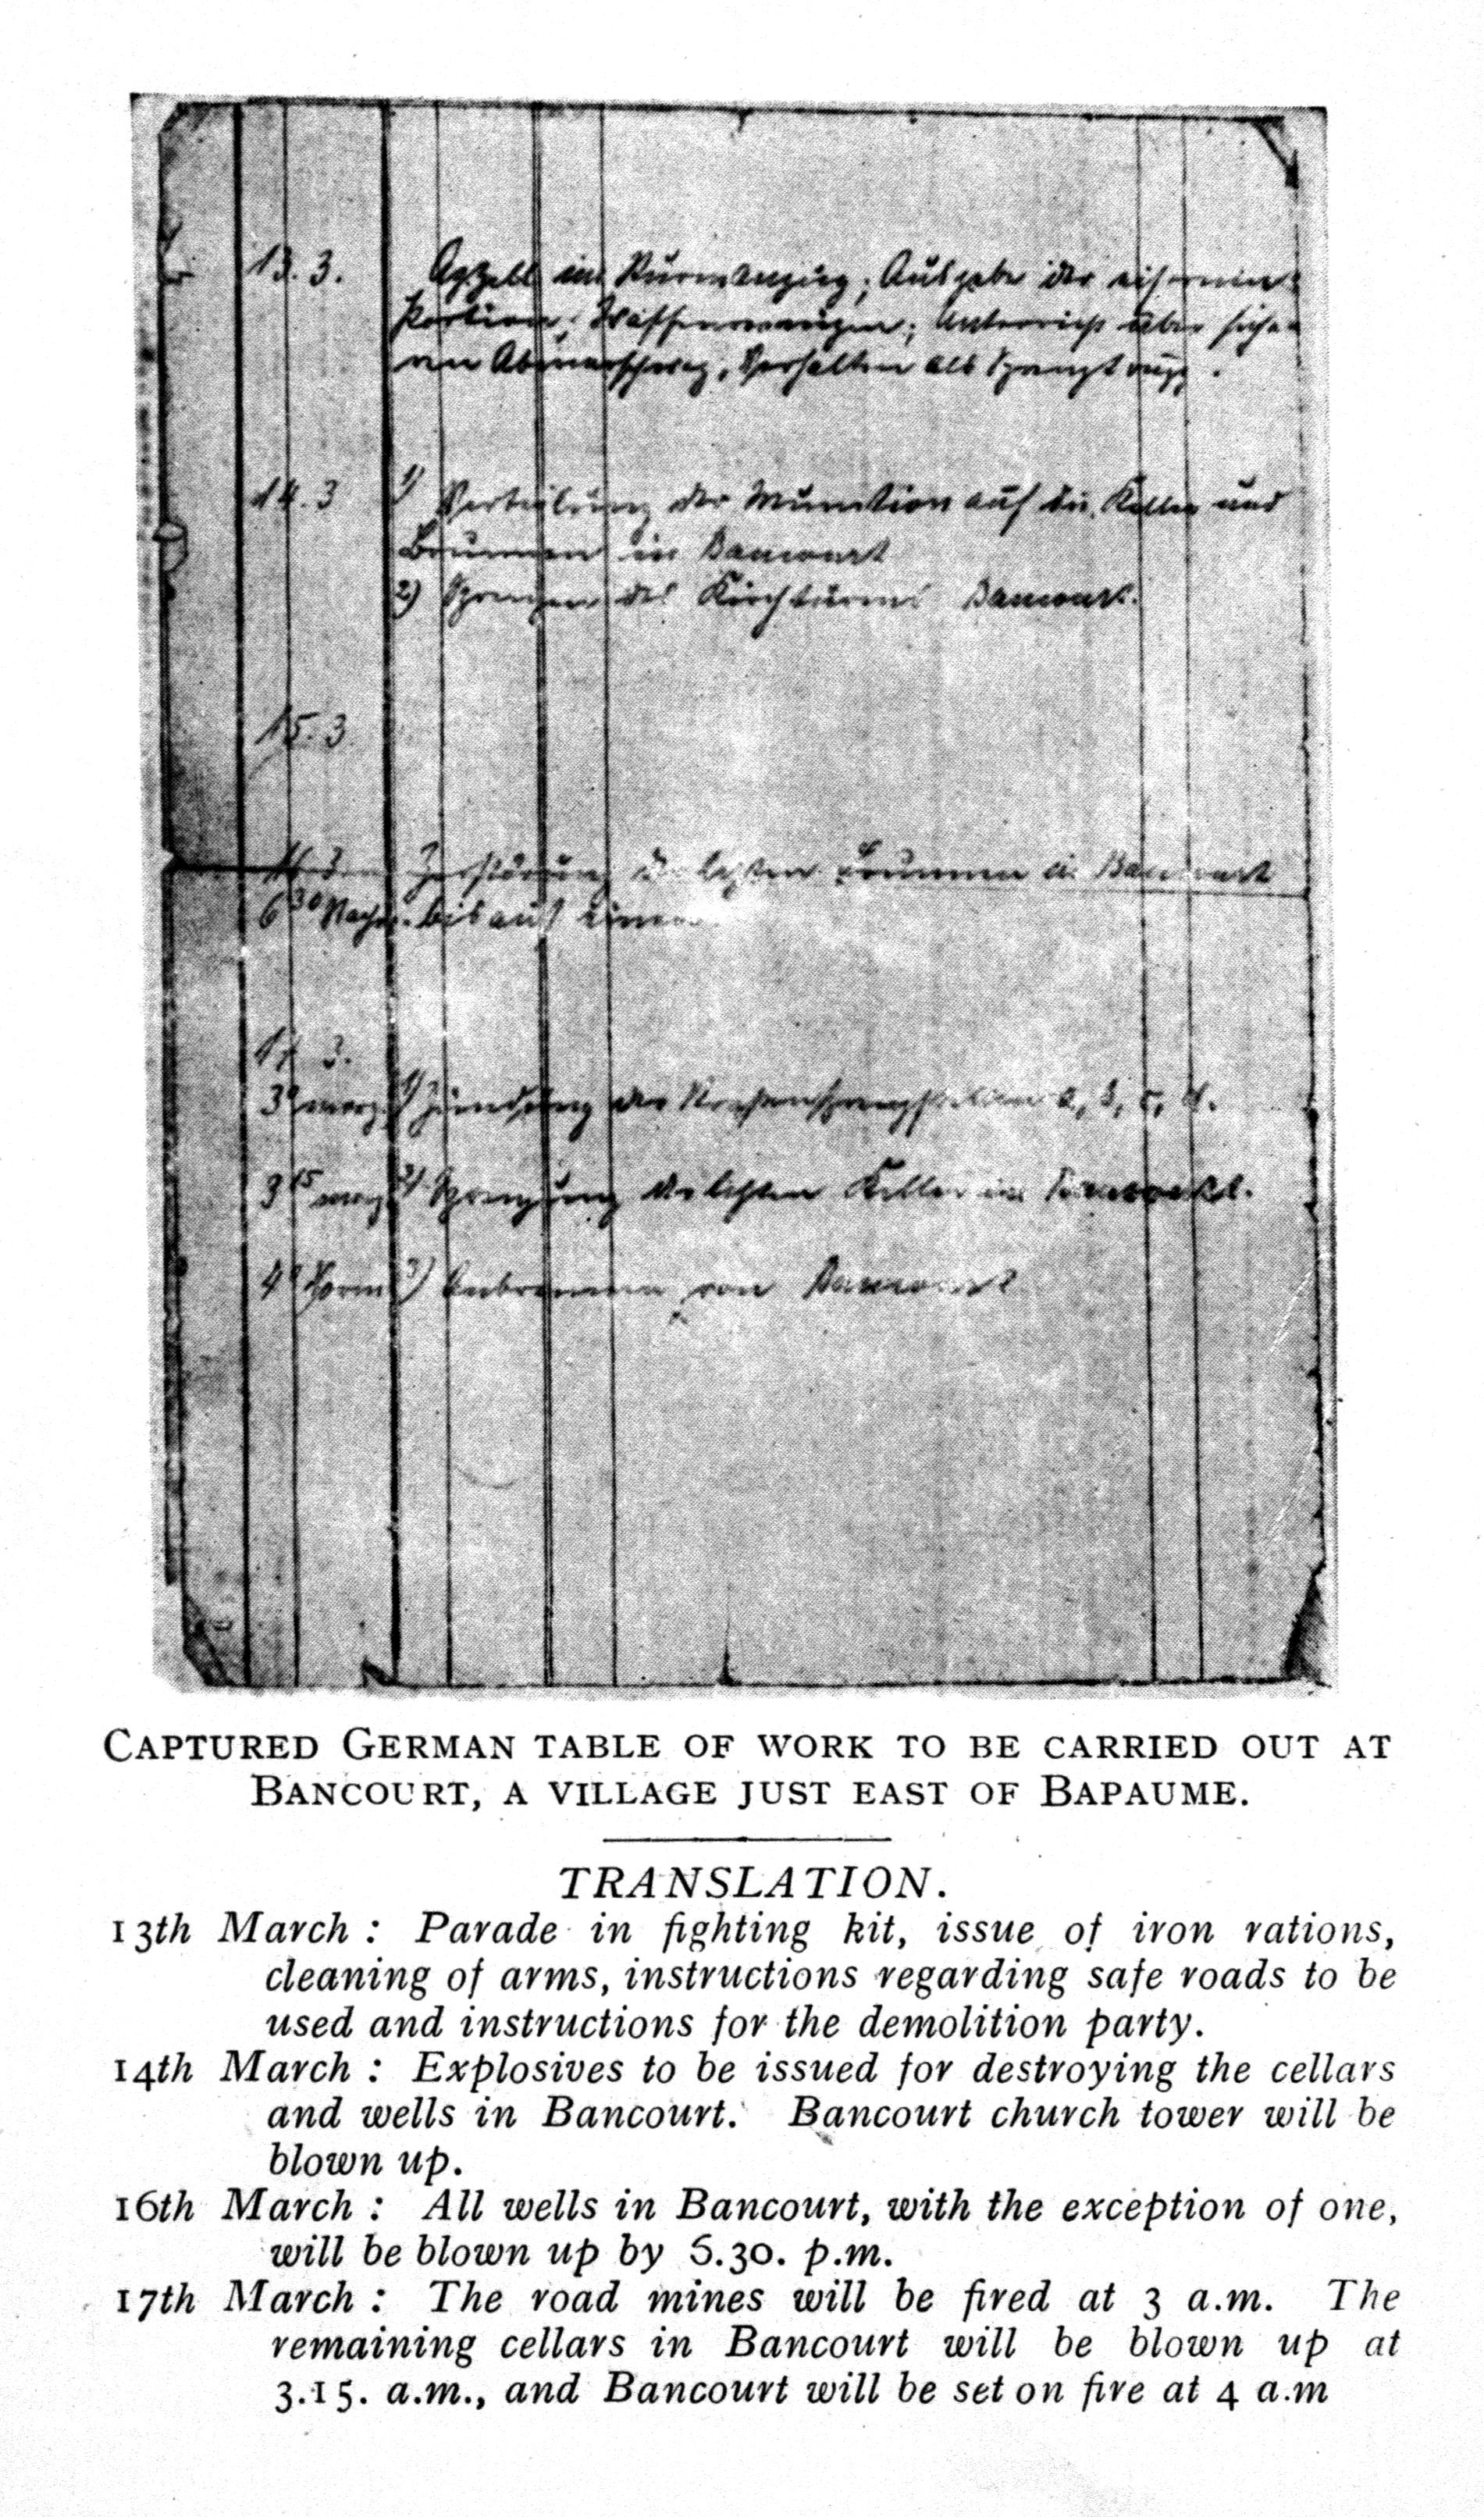 13. 3. Appell im Sturmanzug; Ausgabe der eisernen
Portion; Waffenreinigen; Unterricht über
Verhalten als Sprengtrupp.
14. 3 1) Verteilung der Munition auf die Keller und
Brunnen in Bancourt
2) Sprengen des Kirchturms Bancourt.
15. 3.
16. 3 Zerstörung der letzten Brunnen in Bancourt
6 30 Nachm. bis auf einen
17 3.
3 0 morg. 1) Zündung der a, b, c, d.
3 15 morg. 2) Sprengung der letzten Keller in Bancourt.
4 0 Vorm 3) Anbrennen von Bancourt
CAPTURED GERMAN TABLE OF WORK TO BE CARRIED OUT AT
BANCOURT, A VILLAGE JUST EAST OF BAPAUME.
TRANSLATION.
13th March : Parade in fighting kit, issue of iron rations,
cleaning of arms, instructions regarding safe roads to be
used and instructions for the demolition party.
14th March : Explosives to be issued for destroying the cellars
and wells in Bancourt. Bancourt church tower will be
blown up.
16th March : All wells in Bancourt, with the exception of one,
will be blown up by 6.30. p.m.
17th March : The road mines will be fired at 3 a.m. The
remaining cellars in Bancourt will be blown up at
3.15. a.m., and Bancourt will be set on fire at 4 a.m